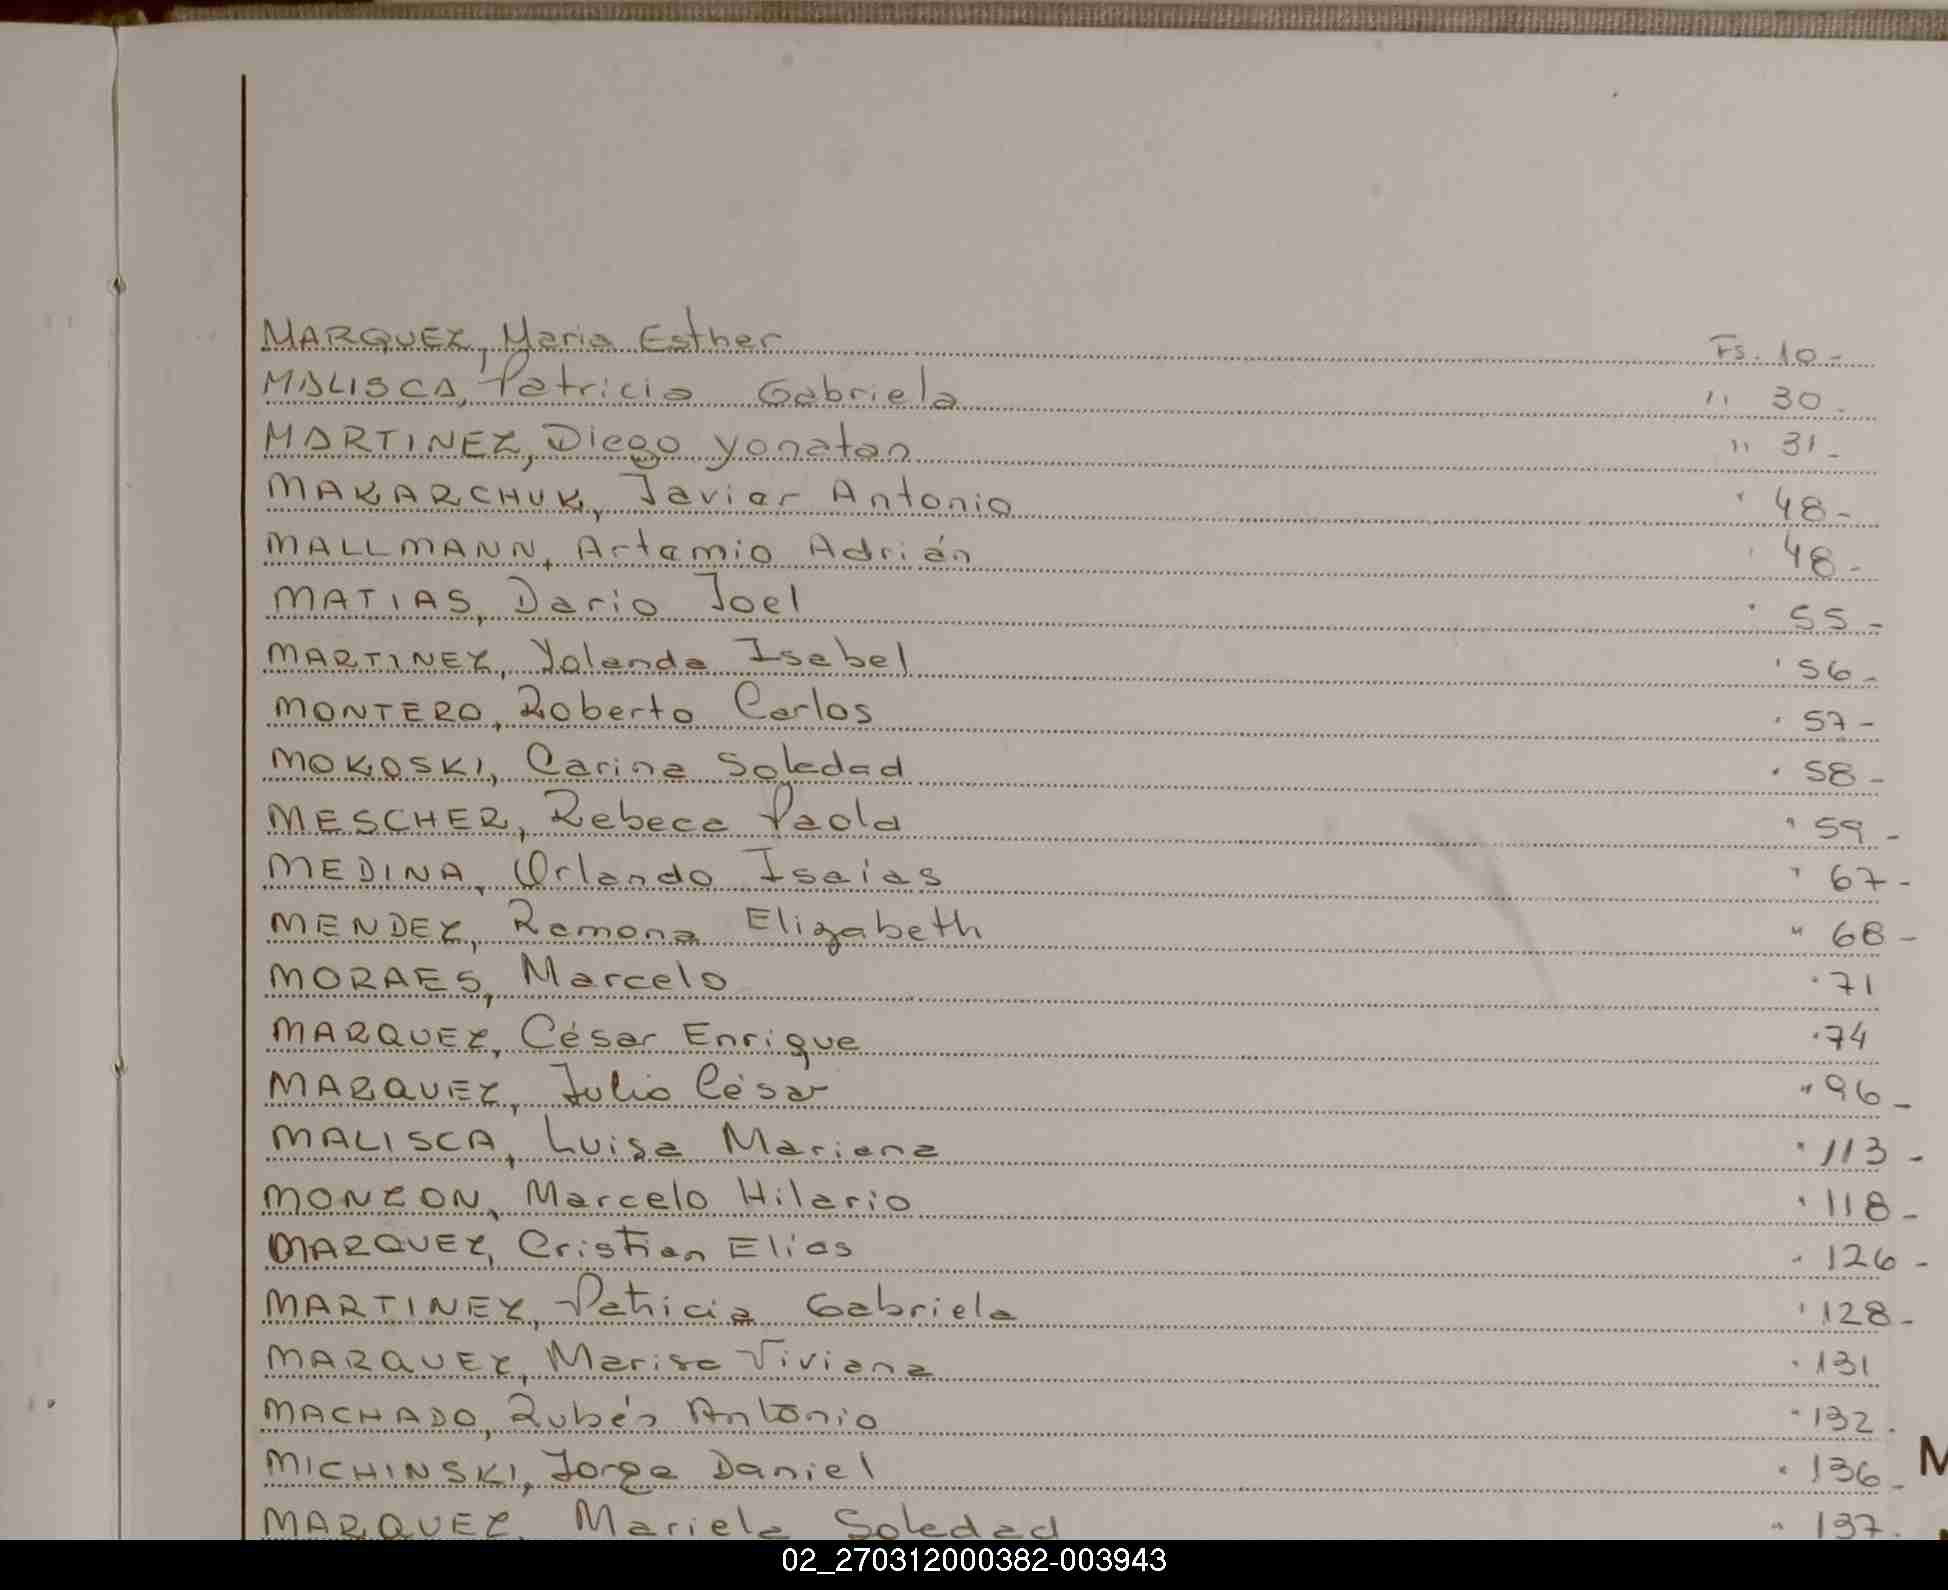 MARQUEZ, Maria Esther Fs. 10-
MALISCA, Patricia Gabriela " 30-
MARTINEZ, Diego Yonatan " 31-
MAKARCHUK, Javier Antonio " 48-
MALLMANN, Artemio Adrián " 48-
MATIAS, Dario Joel " 55-
MARTINEZ, Yolanda Isabel " 56-
MONTERO, Roberto Carlos " 57-
MOKOSKI, Carina Soledad " 58-
MESCHER, Rebeca Paola " 59-
MEDINA, Orlando Isaias " 67-
MENDEZ, Ramona Elizabeth " 68-
MORAES, Marcelo " 71
MARQUEZ, César Enrique " 74
MARQUEZ, Julio César " 96-
MALISCA, Luisa Mariana " 113-
MONZON, Marcelo Hilario " 118-
MARQUEZ, Cristian Elias " 126-
MARTINEZ, Patricia Gabriela " 128-
MARQUEZ, Marisa Viviana " 131
MACHADO, Rubén Antonio " 132.
MICHINSKI, Jorge Daniel " 136-
MARQUEZ, Mariela Soledad " 137.
M
02_270312000382-003943